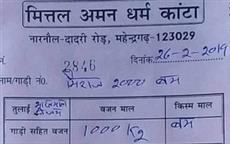 मित्तल अमन धर्म कांटा
नारनौल-दादरी रोड़, महेन्द्रगढ़-123029
नं. 3846 दिनांक 26-2-2019
नाम/गाड़ी नं. मिराज 2000 बम
तुलाई वजन माल किस्म माल
गाड़ी सहित वजन 1000 Kg बम